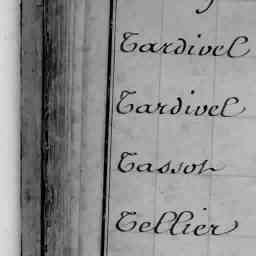 Tardivel
Tardivel
Tasson
Tellier